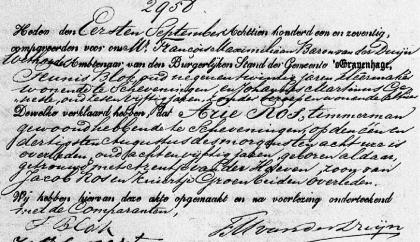 2956
Heden den Eersten September Achttien honderd een en zeventig,
compareerden voor ons W. François Maximiliaan Baron van der Duijn
Wethouder Ambtenaar van den Burgerlijken Stand der Gemeente 's Gravenhage,
Teunis Blok, oud negen en twintig jaren,
wonende te Scheveningen, en Johannes Martinus
oud vijftig jaren, zonder beroep, wonende alhier
Dewelke verklaard hebben dat Arie Ros, timmerman
gewoond hebbende te Scheveningen, op den een en
dertigsten Augustus des morgens ten acht ure is
overleden, oud acht en vijftig jaren, geboren aldaar,
getrouwd met van der Hoeven, zoon van
Jacob Ros en Kniertje Groen beiden overleden.
Wij hebben hiervan deze akte opgemaakt en na voorlezing onderteekend
met de Comparanten,
T Blok
van der Duijn